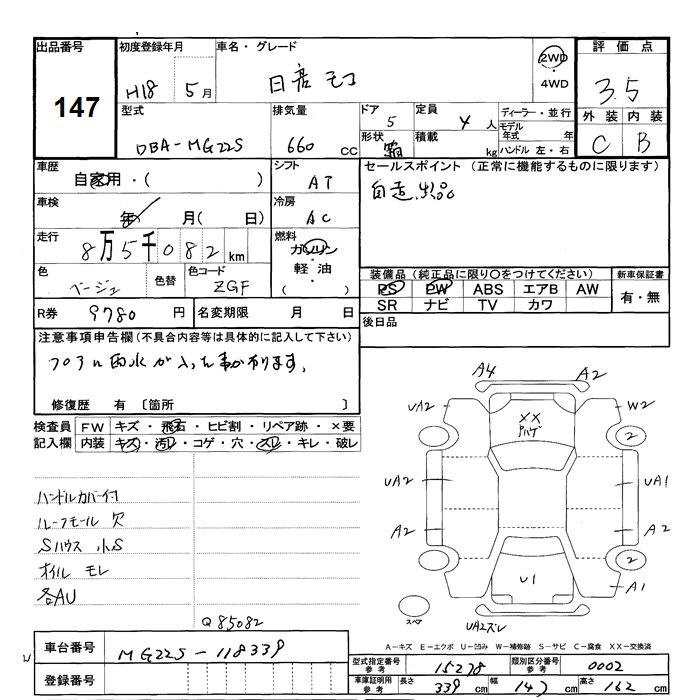 出品番号
147
初度登録年月
H18 5月
車名・グレード
日産 モコ
2WD
・
4WD
評価点
3.5
外装 内装
C B
型式
DBA-MG22S
排気量
660 cc
ドア
5
定員
4 人
形状
箱
積載
kg
ディーラー・並行
モデル年式 年
ハンドル 左・右
車歴
自家用・( )
シフト
AT
車検
年 月( 日)
冷房
AC
走行
8万5千082km
燃料
ガソリン
・
軽油
( )
色
ベージュ
色替
色コード
ZGF
R券 9780 円
名変期限 月 日
セールスポイント(正常に機能するものに限ります)
自走出品。
装備品(純正品に限り○をつけてください)
PS PW ABS エアB AW
SR ナビ TV カワ
新車保証書
有・無
後日品
注意事項申告欄(不具合内容等は具体的に記入して下さい)
フロアに雨水が入った事があります。
修復歴 有〔箇所 〕
検査員記入欄
FW キズ・飛石・ヒビ割・リペア跡・×要
内装 キズ・汚レ・コゲ・穴・スレ・キレ・破レ
ハンドルカバー付
ルーフモール 欠
Sハウス 小S
オイル モレ
各AU
Q85082
A4
A2
UA2
W2
XX
Pハゲ
2
UA2
UA1
A2
A2
2
U1
A1
スペア
UA2ズレ
A-キズ E-エクボ U-凹み W-補修跡 S-サビ C-腐食 XX-交換済
車台番号
MG22S-118339
登録番号
型式指定番号 参考 15278
類別区分番号 参考 0002
車庫証明用 参考 長さ 339 cm 幅 147 cm 高さ 162 cm